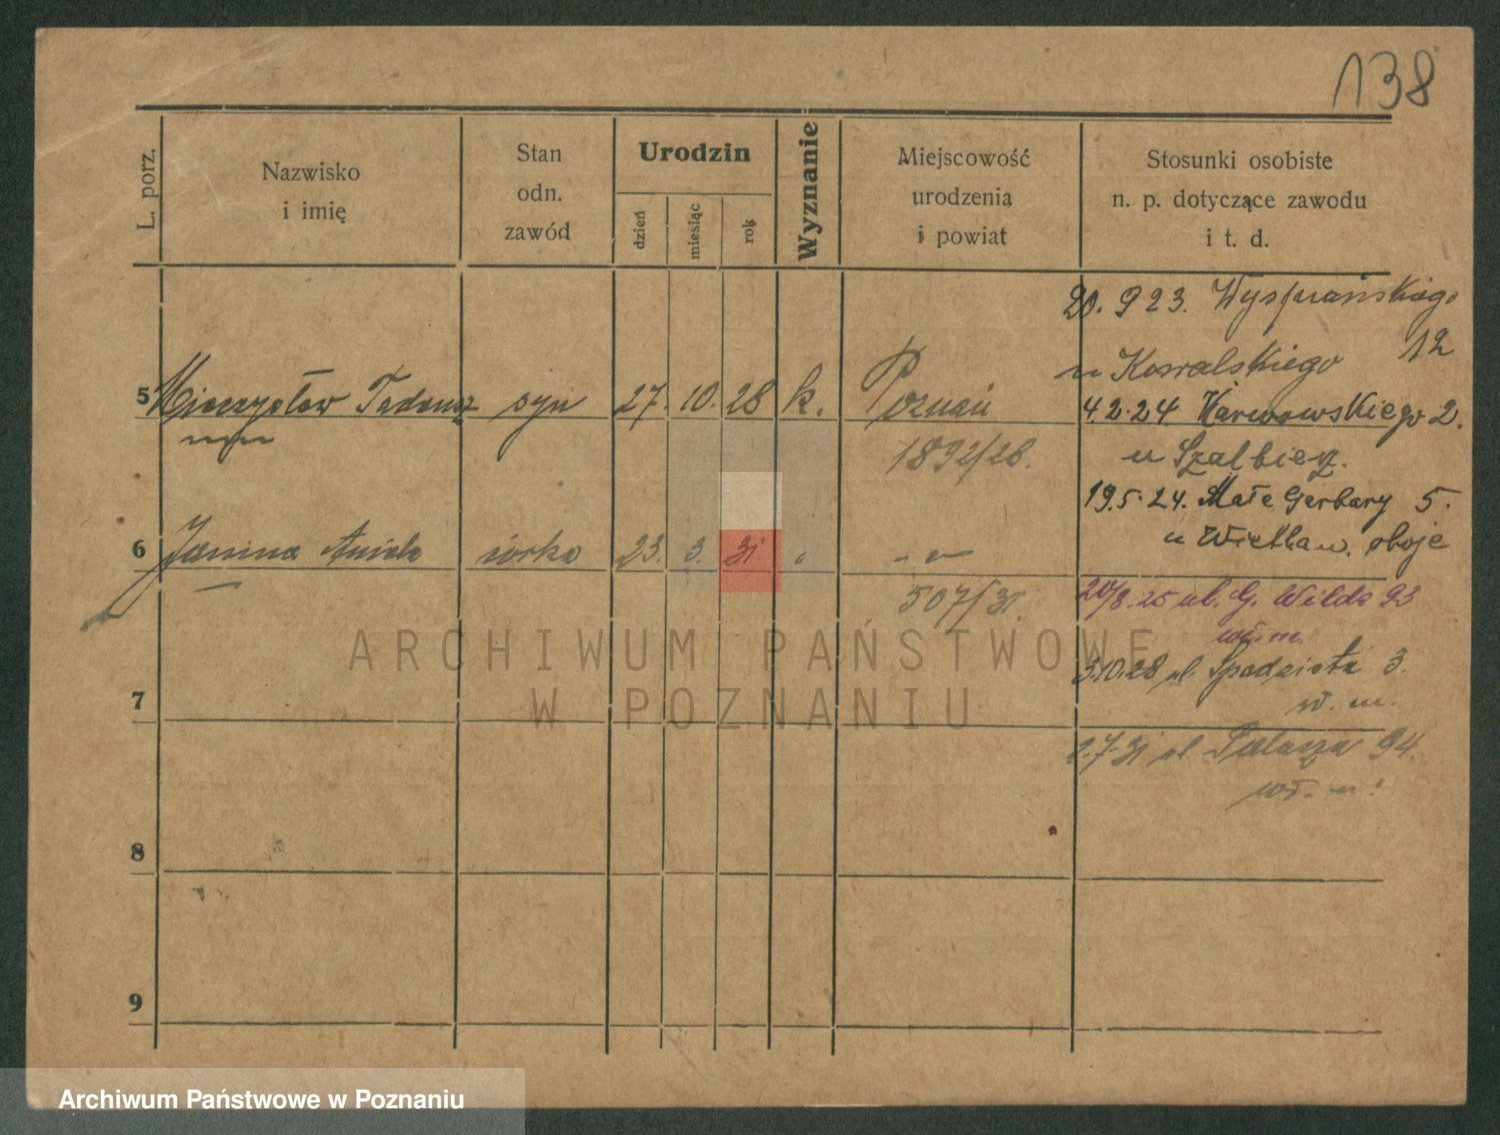 138
L. porz.
Nazwisko
i imię
Stan
odn.
zawód
Urodzin
dzień
miesiąc
rok
Wyznanie
Miejscowość
urodzenia
i powiat
Stosunki osobiste
n. p. dotyczące zawodu
i t. d.
20. 9 23. Wyspiańskiego
12
u Kowalskiego
5 Mieczysław Tadeusz syn 27. 10. 28 k. Poznań
4.2.24 Karwowskiego 2.
1892/28.
u Szalbierz.
19.5.24. Małe Garbary 5.
6 Janina Aniela córka 23. 3. 31 " - " -
u Wietław. oboje
507/31.
20/8.25 ul. G. Wilda 93
wł. m.
3.10.28 ul. Spadzista 3.
7
wł. m.
2.7.31 ul. 94.
wł. m.
8
9
ARCHIWUM PAŃSTWOWE
W POZNANIU
Archiwum Państwowe w Poznaniu